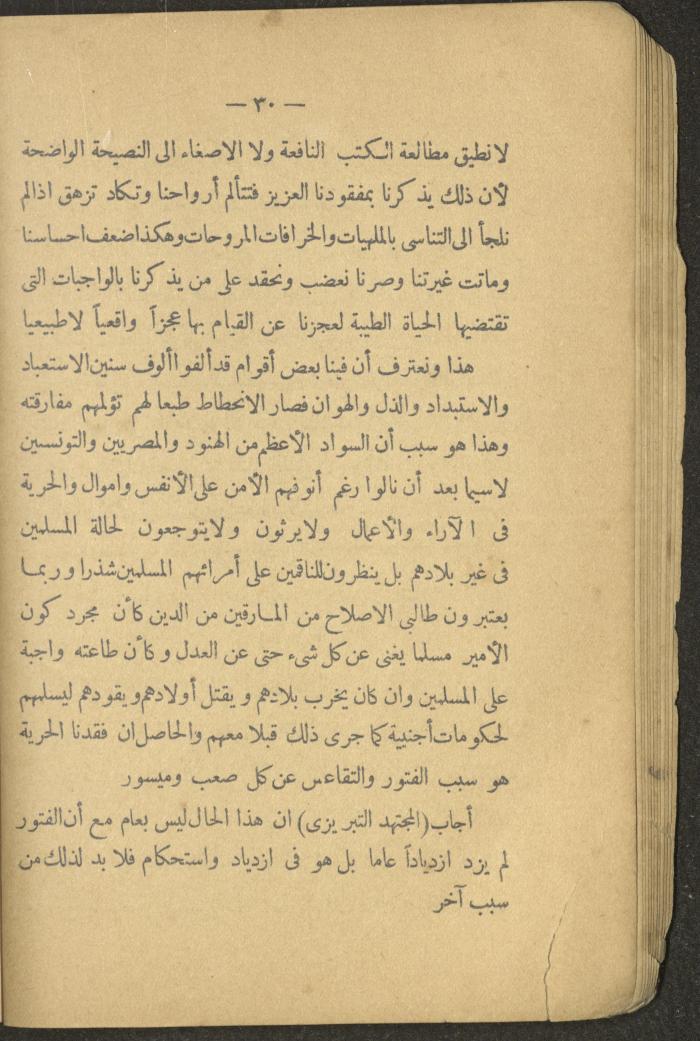 — ٣٠ —
لا نطيق مطالعة الكتب النافعة ولا الاصغاء الى النصيحة الواضحة
لأن ذلك يذكرنا بمفقودنا العزيز فتتألم أرواحنا وتكاد تزهق اذالم
نلجأ الى التناسى بالملهيات والخرافات المروحات وهكذا ضعف احساسنا
وماتت غيرتنا وصرنا نعضب ونحقد على من يذكرنا بالواجبات التى
تقتضيها الحياة الطيبة لعجزنا عن القيام بها عجزاً واقعياً لاطبيعيا
هذا ونعترف أن فينا بعض أقوام قد ألفوا ألوف سنين الاستعباد
والاستبداد والذل والهوان فصار الانحطاط طبعا لهم تؤلمهم مفارقته
وهذا هو سبب أن السواد الأعظم من الهنود والمصريين والتونسيين
لاسيما بعد أن نالوا رغم أنوفهم الأمن على الأنفس واموال والحرية
فى الآراء والأعمال ولايرثون ولايتوجعون لحالة المسلمين
فى غير بلادهم بل ينظرون للناقمين على أمرائهم المسلمين شذرا وربما
يعتبرون طالبى الاصلاح من المارقين من الدين كأن مجرد كون
الأمير مسلما يغنى عن كل شىء حتى عن العدل وكأن طاعته واجبة
على المسلمين وان كان يخرب بلادهم ويقتل أولادهم ويقودهم ليسلمهم
لحكومات أجنبية كما جرى ذلك قبلا معهم والحاصل ان فقدنا الحرية
هو سبب الفتور والتقاعس عن كل صعب وميسور
أجاب (المجتهد التبريزى) ان هذا الحال ليس بعام مع أن الفتور
لم يزد ازدياداً عاما بل هو فى ازدياد واستحكام فلا بد لذلك من
سبب آخر